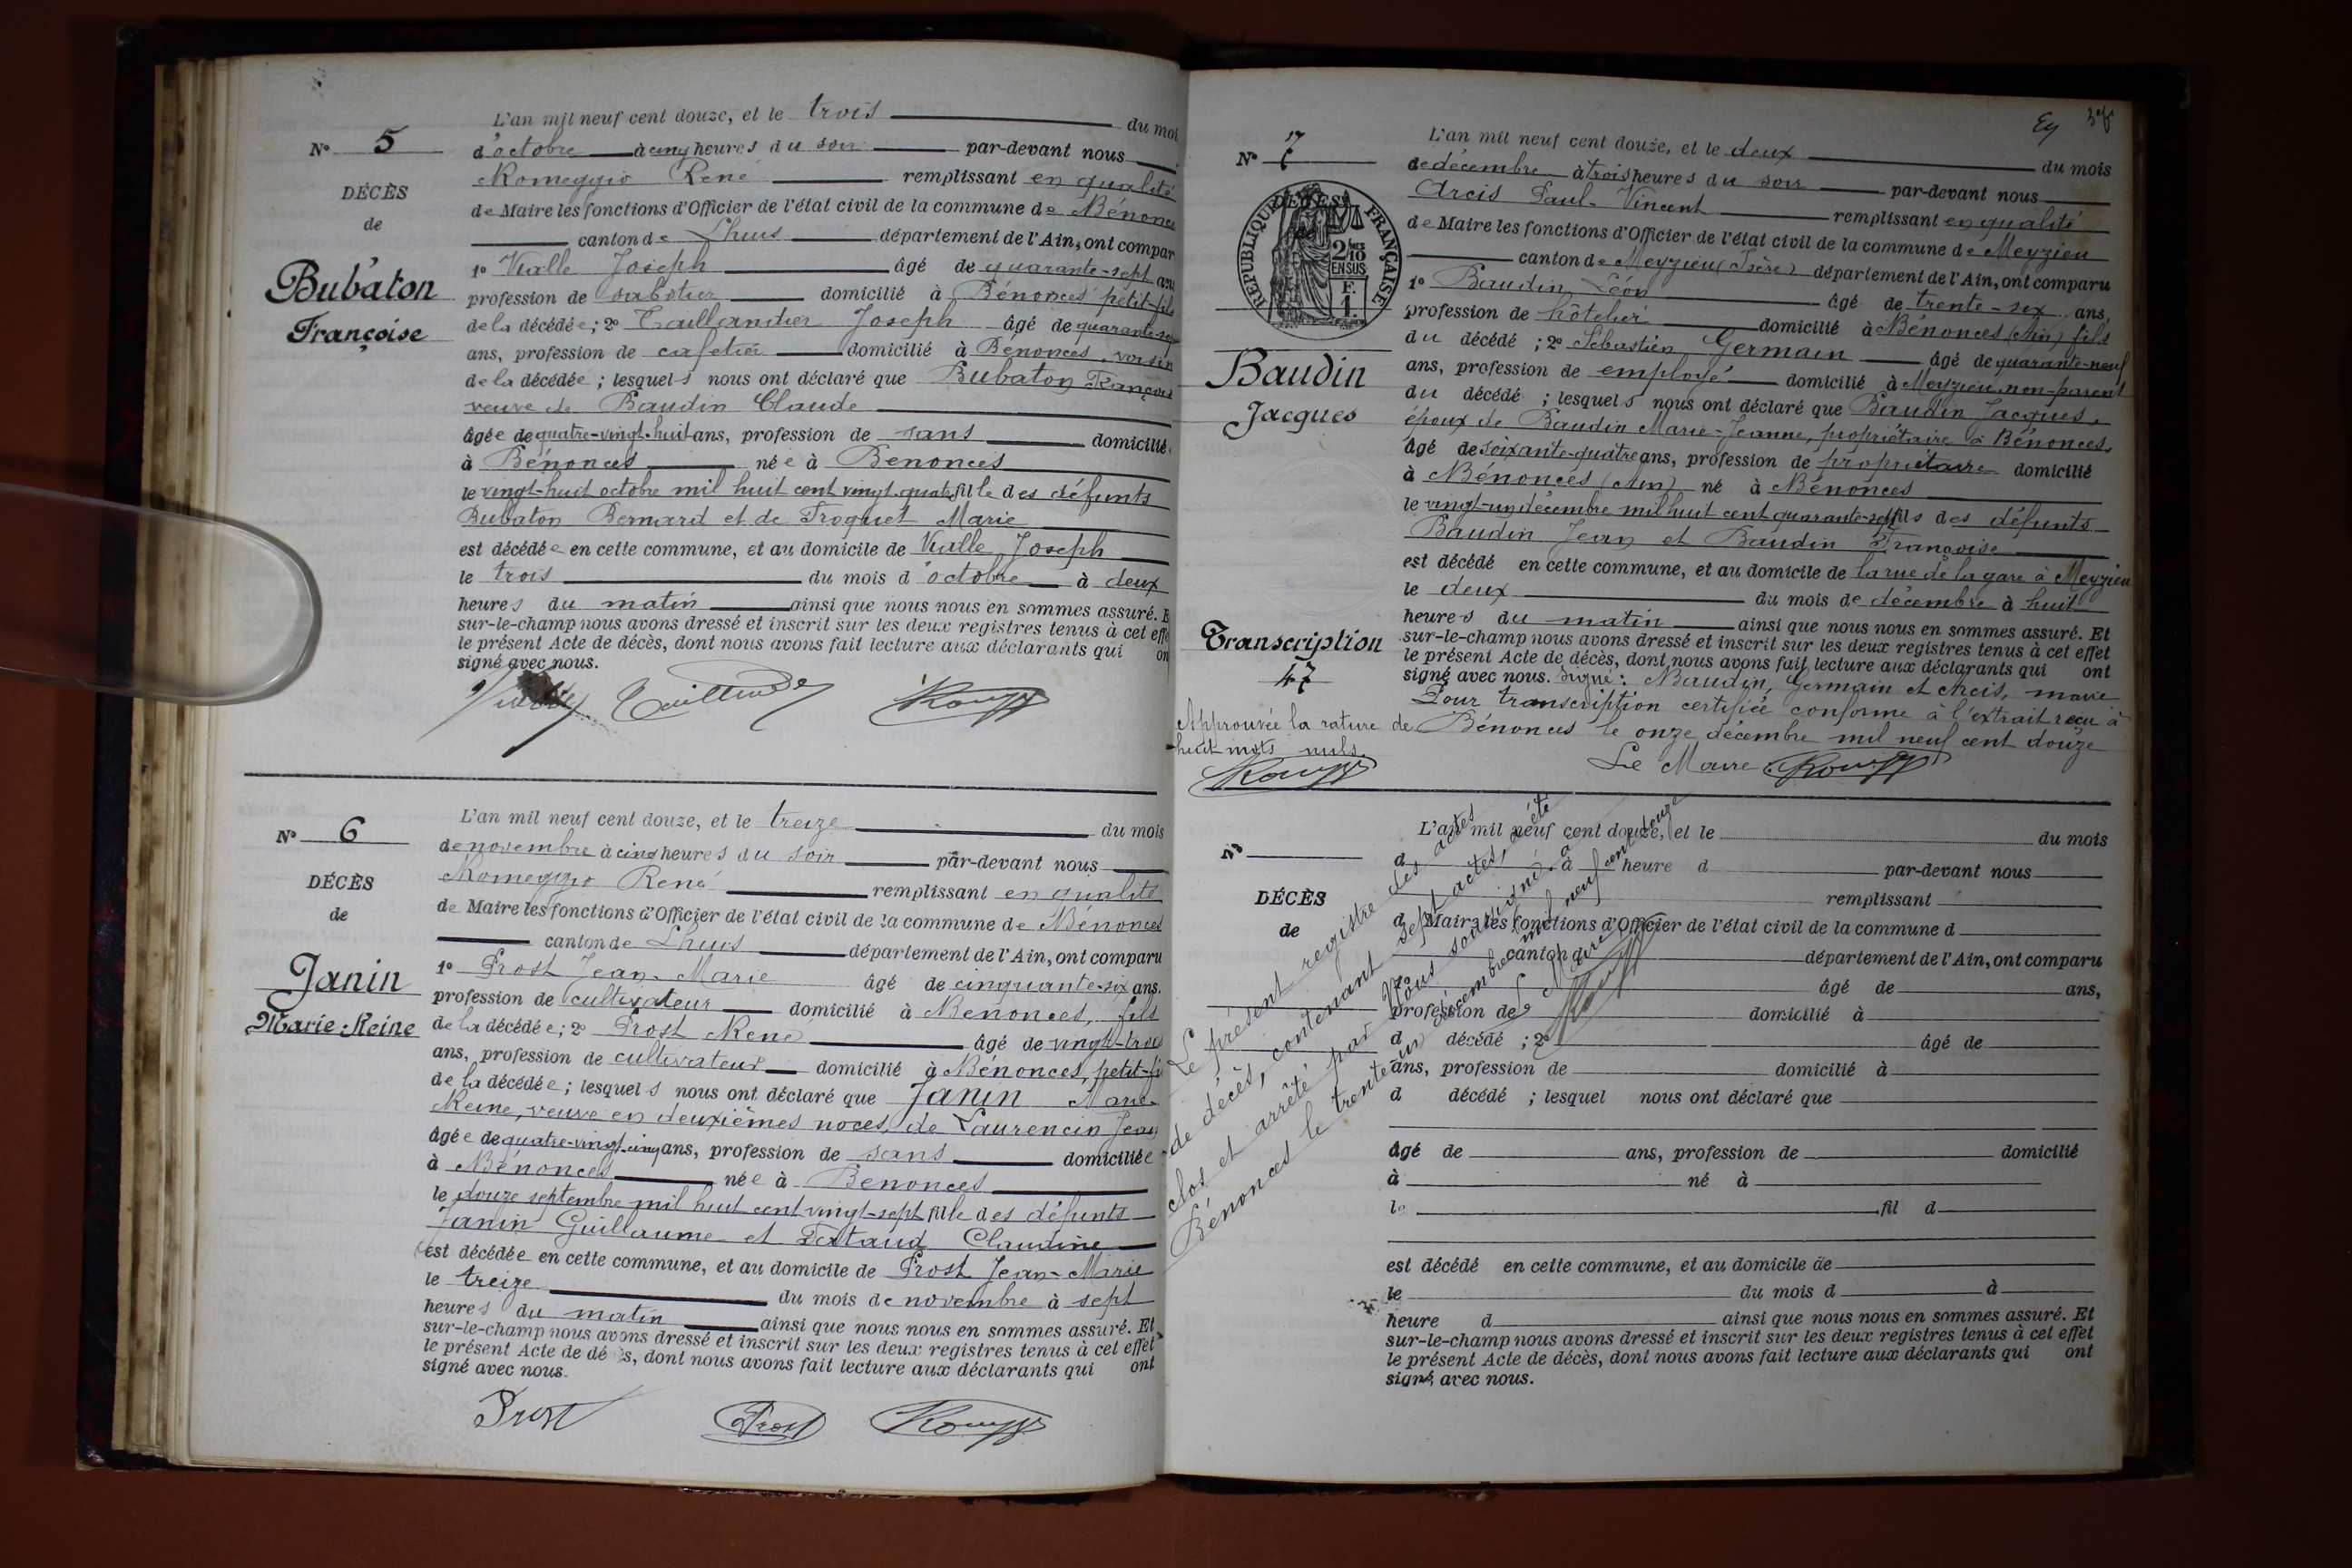 L'an mil neuf cent douze, et le trois du mois
N° 5
d'octobre à cinq heures du soir par-devant nous
Romeggio René remplissant en qualité
DÉCÈS
de
de Maire les fonctions d'Officier de l'état civil de la commune de Bénonces
canton de Lhuis département de l'Ain, ont comparu
Bubaton
Françoise
1° Vialle Joseph âgé de quarante-sept ans
profession de sabotier domicilié à Bénonces petit-fils
de la décédée ; 2° Taillandier Joseph âgé de quarante-sept
ans, profession de cafetier domicilié à Bénonces, voisin
de la décédée ; lesquels nous ont déclaré que Bubaton Françoise
veuve de Baudin Claude
âgée de quatre-vingt-huit ans, profession de sans domiciliée
à Bénonces née à Bénonces
le vingt-huit octobre mil huit cent vingt-quatre fille des défunts
Bubaton Bernard et de Troquet Marie
est décédée en cette commune, et au domicile de Vialle Joseph
le trois du mois d'octobre à deux
heures du matin ainsi que nous nous en sommes assuré. E
sur-le-champ nous avons dressé et inscrit sur les deux registres tenus à cet effe
le présent Acte de décès, dont nous avons fait lecture aux déclarants qui on
signé avec nous.
L'an mil neuf cent douze, et le treize du mois
N° 6
de novembre à cinq heures du soir par-devant nous
Romeggio René remplissant en qualité
DÉCÈS
de
de Maire les fonctions d'Officier de l'état civil de la commune de Bénonces
canton de Lhuis département de l'Ain, ont comparu
Janin
Marie-Reine
1° Prost Jean-Marie âgé de cinquante-six ans.
profession de cultivateur domicilié à Bénonces, fils
de la décédée ; 2° Prost René âgé de vingt-trois
ans, profession de cultivateur domicilié à Bénonces, petit-fi
de la décédée ; lesquels nous ont déclaré que Janin Marie-
Reine, veuve en deuxièmes noces, de Laurencin Jean
âgée de quatre-vingt-cinq ans, profession de sans domiciliée
à Bénonces née à Bénonces
le douze septembre mil huit cent vingt-sept fille des défunts
Janin Guillaume et Claudine
est décédée en cette commune, et au domicile de Prost Jean-Marie
le treize du mois de novembre à sept
heures du matin ainsi que nous nous en sommes assuré. Et
sur-le-champ nous avons dressé et inscrit sur les deux registres tenus à cet effet
le présent Acte de décès, dont nous avons fait lecture aux déclarants qui ont
signé avec nous.
Prost Prost
L'an mil neuf cent douze, et le deux du mois
N° 7
de décembre à trois heures du soir par-devant nous
Arcis Paul-Vincent remplissant en qualité
DÉCÈS
de
RÉPUBLIQUE FRANÇAISE
2/10 EN SUS
F. 1.
de Maire les fonctions d'Officier de l'état civil de la commune de Meyzieu
canton de Meyzieu (Isère) département de l'Ain, ont comparu
1° Baudin Léon âgé de trente-six ans,
profession de hôtelier domicilié à Bénonces (Ain) fils
du décédé ; 2° Sébastien Germain âgé de quarante-neuf
Baudin
Jacques
ans, profession de employé domicilié à Meyzieu, non-parent
du décédé ; lesquels nous ont déclaré que Baudin Jacques,
époux de Baudin Marie-Jeanne, propriétaire à Bénonces,
âgé de soixante-quatre ans, profession de propriétaire domicilié
à Bénonces (Ain) né à Bénonces
le vingt-un décembre mil huit cent quarante-sept fils des défunts
Baudin Jean et Baudin Françoise
est décédé en cette commune, et au domicile de la rue de la gare à Meyzieu
le deux du mois de décembre à huit
heures du matin ainsi que nous nous en sommes assuré. Et
Transcription
47
sur-le-champ nous avons dressé et inscrit sur les deux registres tenus à cet effet
le présent Acte de décès, dont nous avons fait lecture aux déclarants qui ont
signé avec nous. Signé : Baudin, Germain et Arcis, maire
Pour transcription certifiée conforme à l'extrait reçu à
Bénonces le onze décembre mil neuf cent douze
Le Maire
Approuvée la rature de
huit mots nuls
L'an mil neuf cent douze, et le du mois
N°
d à heure d par-devant nous
remplissant
DÉCÈS
de
d Maire les fonctions d'Officier de l'état civil de la commune d
canton d département de l'Ain, ont comparu
âgé de ans,
profession de domicilié à
d décédé ; 2° âgé de
ans, profession de domicilié à
d décédé ; lesquel nous ont déclaré que
âgé de ans, profession de domicilié
à né à
le fil d
est décédé en cette commune, et au domicile de
le du mois d à
heure d ainsi que nous nous en sommes assuré. Et
sur-le-champ nous avons dressé et inscrit sur les deux registres tenus à cet effet
le présent Acte de décès, dont nous avons fait lecture aux déclarants qui ont
signé avec nous.
Le présent registre des actes
de décès, contenant sept actes, a été
clos et arrêté par Nous soussigné à
Bénonces le trente un décembre mil neuf cent douze
Le Maire